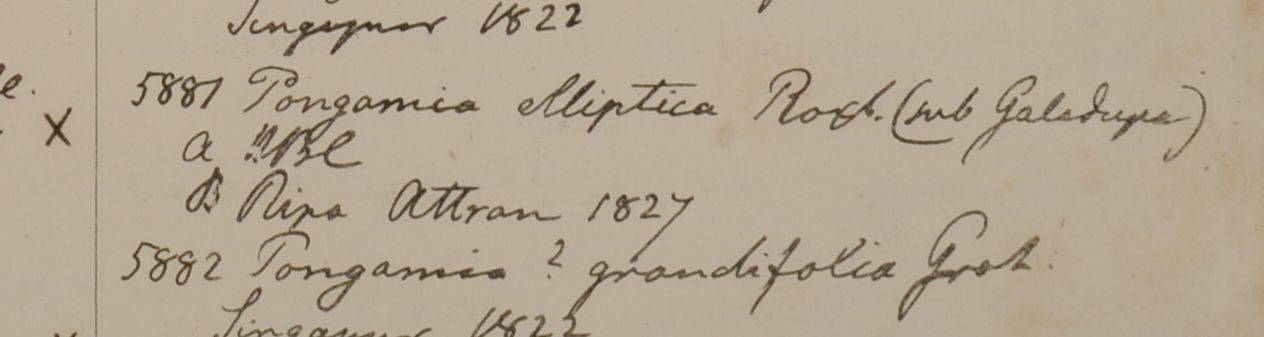 Singapur 1822
5881 Pongamia elliptica Roxb. (sub Galedupa)
a HBC
B Ripa Attran 1827
5882 Pongamia ? grandifolia Grah.
Singapur 1822